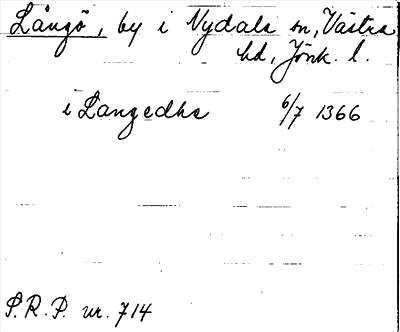 Långö, by i Nydala sn, Västra
hd, Jönk. l.
i Langedhe 6/7 1366
P.R.P. nr. 714